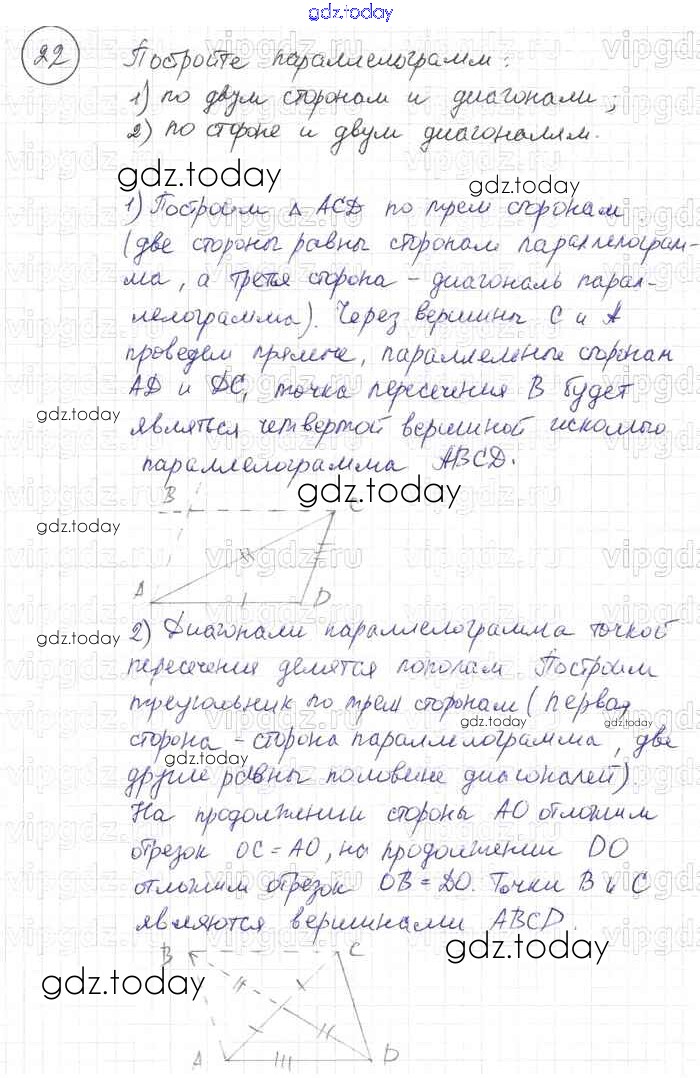 gdz.today
22
Постройте параллелограмм:
1) по двум сторонам и диагонали;
2) по стороне и двум диагоналям.
gdz.today
gdz.today
1) Построим △ ACD по трем сторонам
(две стороны равны сторонам параллелограм-
ма, а третья сторона - диагональ парал-
лелограмма). Через вершины C и A
проведем прямые, параллельные сторонам
AD и DC, точка пересечения B будет
gdz.today
являться четвертой вершиной искомого
параллелограмма ABCD.
gdz.today
B C
gdz.today
A D
2) Диагонали параллелограмма точкой
gdz.today
пересечения делятся пополам. Построим
треугольник по трем сторонам (первая
gdz.today
gdz.today
сторона - сторона параллелограмма, две
gdz.today
другие равны половине диагоналей).
На продолжении стороны AO отложим
отрезок OC = AO, на продолжении DO
отложим отрезок OB = DO. Точки B и C
являются вершинами ABCD.
gdz.today
B C
gdz.today
A D